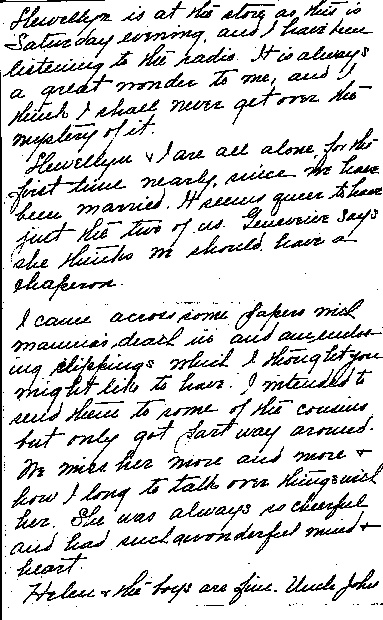 Llewellyn is at the store as this is
Saturday evening, and I have been
listening to the radio. It is always
a great wonder to me, and I
think I shall never get over the
mystery of it.
Llewellyn & I are all alone for the
first time nearly, since we have
been married. It seems queer to have
just the two of us. Genevieve says
she thinks we should have a
chaperon.
I came across some papers with
mamma's death in and am enclos
ing clippings which I thought you
might like to have. I intended to
send them to some of the cousins
but only got part way around.
We miss her more and more &
how I long to talk over things with
her. She was always so cheerful
and had such a wonderful mind &
heart.
Helen & the boys are fine. Uncle John